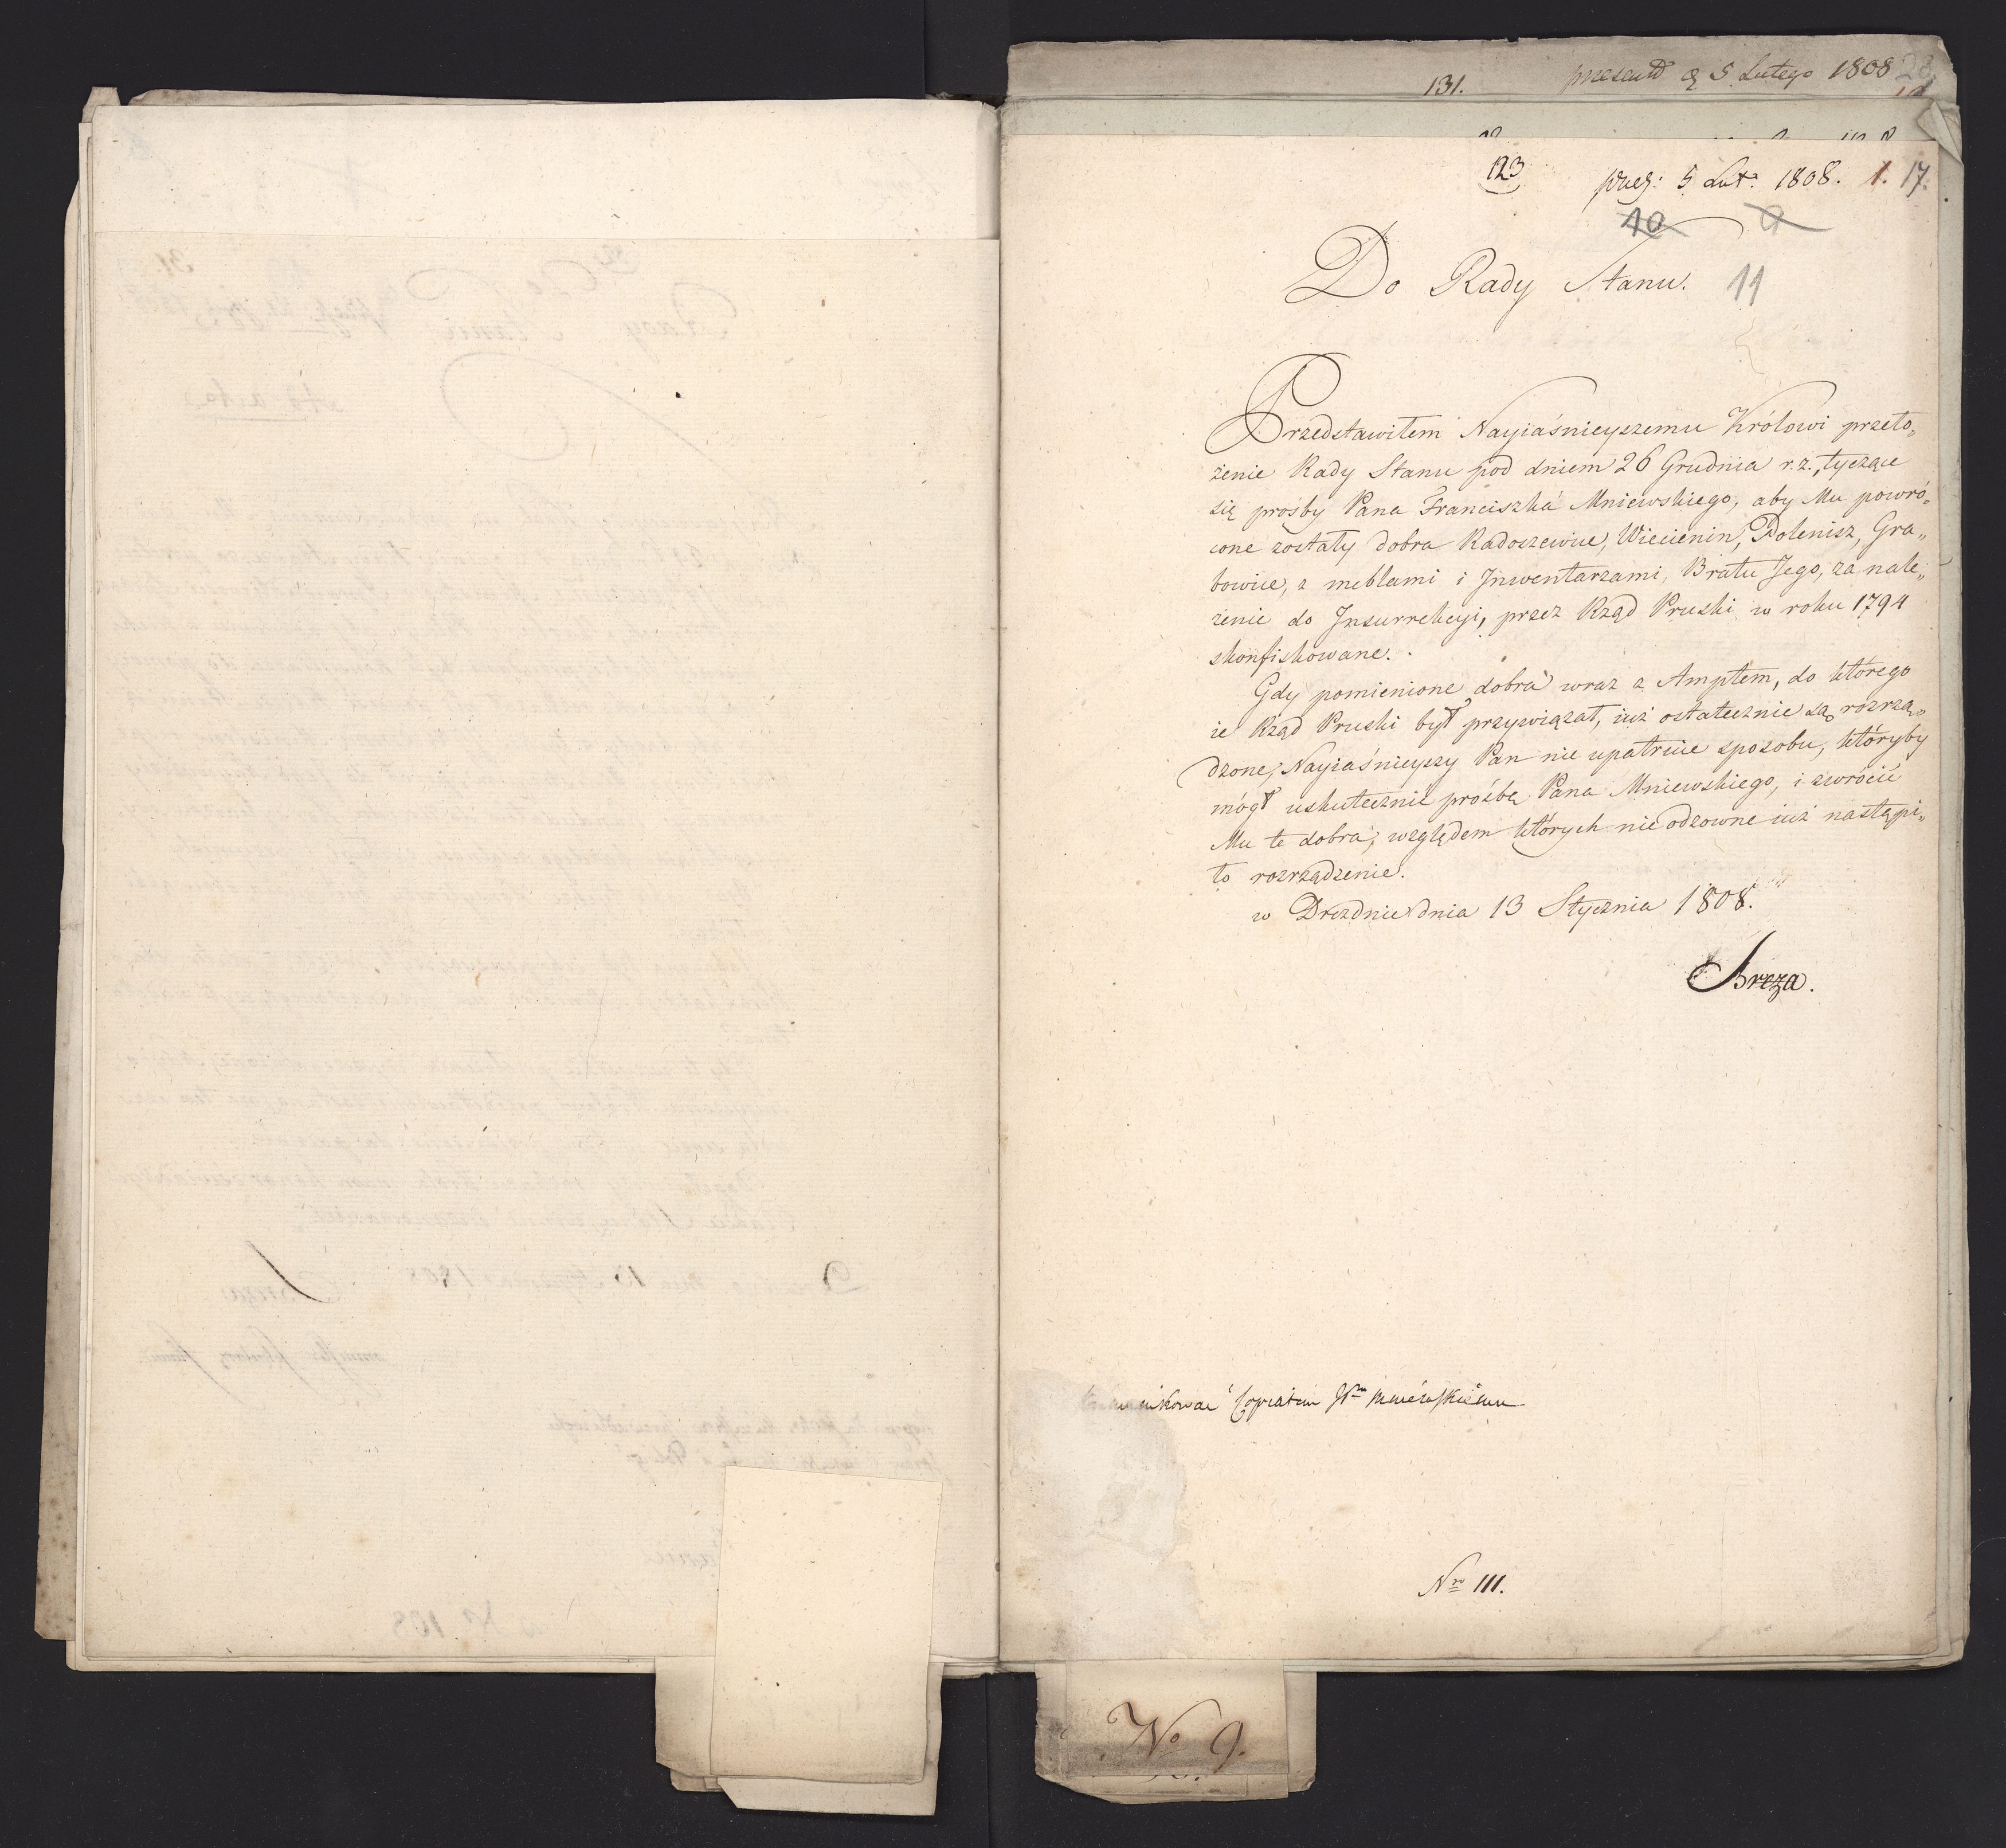 131. 5 Lutego 1808
123
5 Lut: 1808. 1. 17.
10
Do Rady Stanu. 11
Przedstawiłem Nayiaśnieyszemu Królowi przeło„
żenie Rady Stanu pod dniem 26 Grudnia r.z., tyczące
się prośby Pana Franciszka Mniewskiego, aby Mu powró„
cone zostały dobra Radoszewice, Wiecienin, Polenisz, Gra„
bowice, z meblami i Inwentarzami, Bratu Jego, za nale„
żenie do Insurrekcyi, przez Rząd Pruski w roku 1794
skonfiskowane.
Gdy pomienione dobra wraz z Amptem, do którego
ie Rząd Pruski był przywiązał, iuż ostatecznie są rozrzą„
dzone; Nayiaśnieyszy Pan nie upatruie sposobu, któryby
mógł uskutecznić prośbę Pana Mniewskiego, i zwrócić
Mu te dobra, względem których nieodzowne iuż nastąpi„
ło rozrządzenie.
w Dreznie dnia 13 Stycznia 1808.
Breza.
Copiatim Mniewskiemu
Nro 111.
No 9.